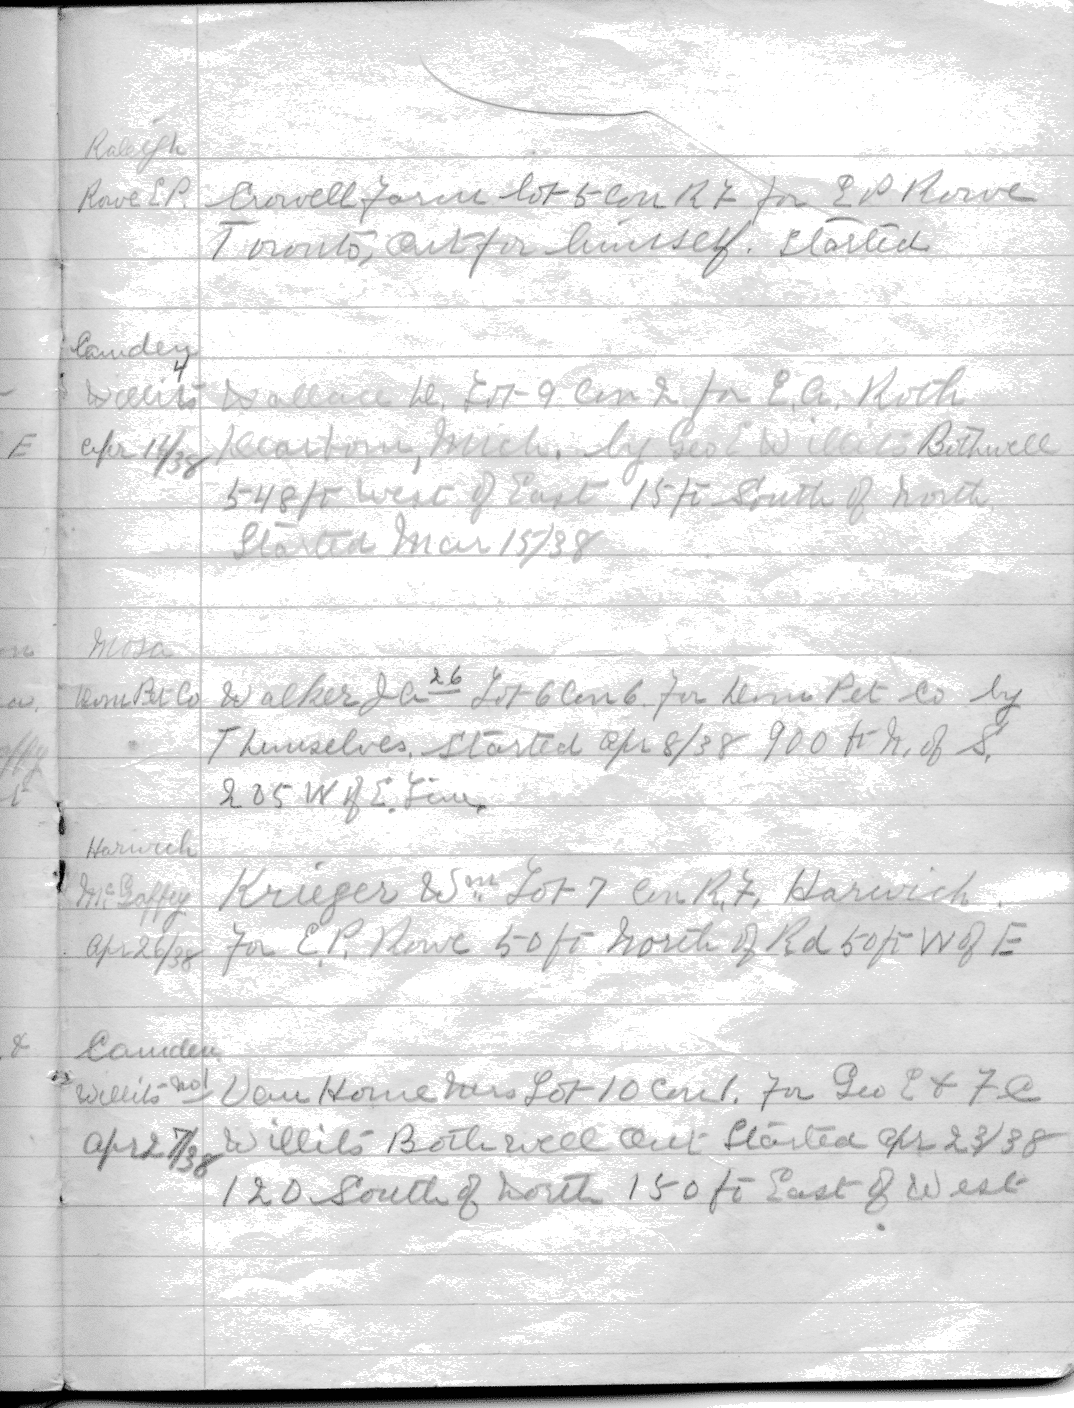 Raleigh
Rowe E.P. Crowell Farm Lot 5 Con R F for E P Rowe
Toronto, Ont for himself. Started
Camden
Willits 4 Wallace D. Lot 9 Con 2 for E.A. Roth
Apr 14/38 Dearborn, Mich. by Geo E Willits Bothwell
548 ft West of East 15 ft South of North
Started Mar 15/38
Mosa
Dom Pet Co Walker J A 26 Lot 6 Con 6. For Dom Pet Co by
Themselves. Started Apr 8/38 900 ft N. of S.
205 W of E. Line.
Harwich
McGaffey Krieger Wm. Lot 7 Con R.F. Harwich.
Apr 26/38 For E.P. Rowe 50 ft North of Rd 50 ft W of E
Camden
Willits No 1 Van Horne Mrs Lot 10 Con 1. For Geo E & F C
Apr 27/38 Willits Bothwell Ont Started Apr 23/38
120 South of North 150 ft East of West